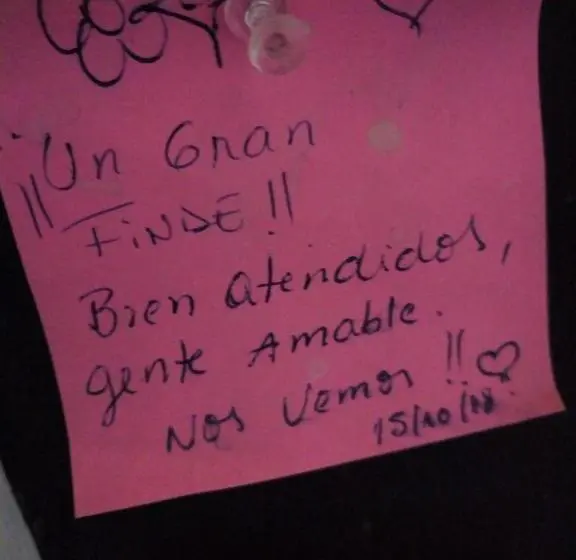 ¡¡Un Gran
FINDE!!
Bien atendidos,
gente Amable.
Nos Vemos!!
15/10/18.